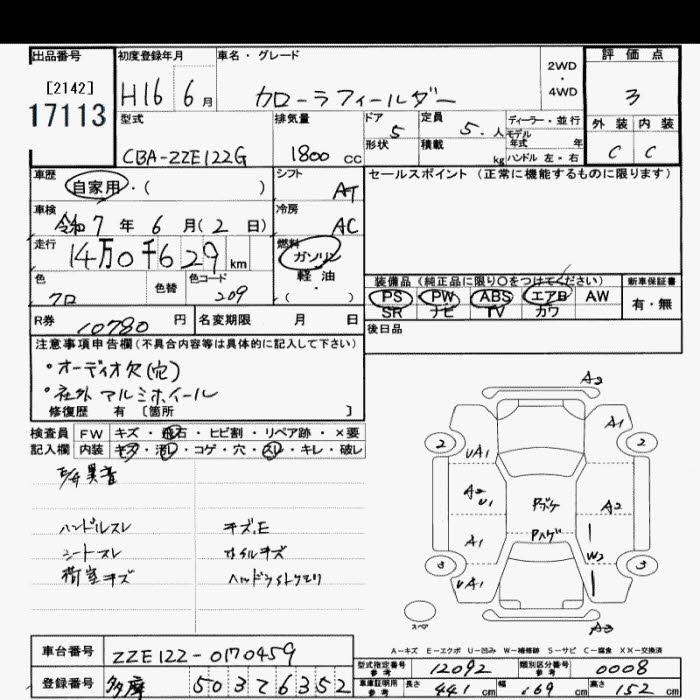 出品番号 初度登録年月 車名・グレード 2WD・4WD 評価点
[2142]
17113 H16 6月 カローラフィールダー 3
型式 排気量 ドア 定員 ディーラー・並行 外装 内装
CBA-ZZE122G 1800cc 5 5.人 モデル年式 年 C C
形状 積載 kg ハンドル 左・右
車歴 シフト セールスポイント (正常に機能するものに限ります)
自家用・( ) AT
車検 冷房
令和7年6月(2日) AC
走行 燃料
14万0千629km ガソリン
軽・油
色 色替 色コード ( )
クロ 209
装備品 (純正品に限り○をつけてください) 新車保証書
PS PW ABS エアB AW 有・無
SR ナビ TV カワ
R券 10780円 名変期限 月 日 後日品
注意事項申告欄(不具合内容等は具体的に記入して下さい)
・オーディオ欠(穴)
・社外アルミホイール
修復歴 有 [箇所 ]
検査員 FW キズ・飛石・ヒビ割・リペア跡・×要
記入欄 内装 キズ・汚レ・コゲ・穴・スレ・キレ・破レ
異音
ハンドルスレ キズ.E
シートスレ ホイルキズ
荷室キズ ヘッドライトクモリ
A2
A1
2 2
UA1
A2 U1 Pボケ A2
Pハゲ
A1 W2
3 3
UA1
スペア A3
A-キズ E-エクボ U-凹み W-補修跡 S-サビ C-腐食 XX-交換済
車台番号 ZZE122-0170459
型式指定番号 参考 12092 類別区分番号 参考 0008
登録番号 多摩 503 て 6352
車庫証明用 参考 長さ 441cm 幅 169cm 高さ 152cm